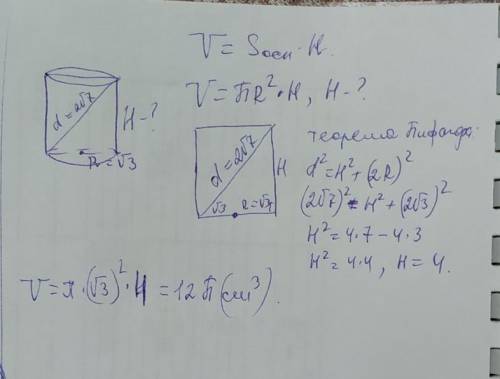 V = Sосн · H.
V = ПR² · H, H - ?
d = 2√7
H - ?
R = √3
d = 2√7
H
√3 R = √3
теорема Пифагора:
d² = H² + (2R)²
(2√7)² = H² + (2√3)²
H² = 4·7 - 4·3
H² = 4·4, H = 4.
V = π · (√3)² · 4 = 12П (см³).